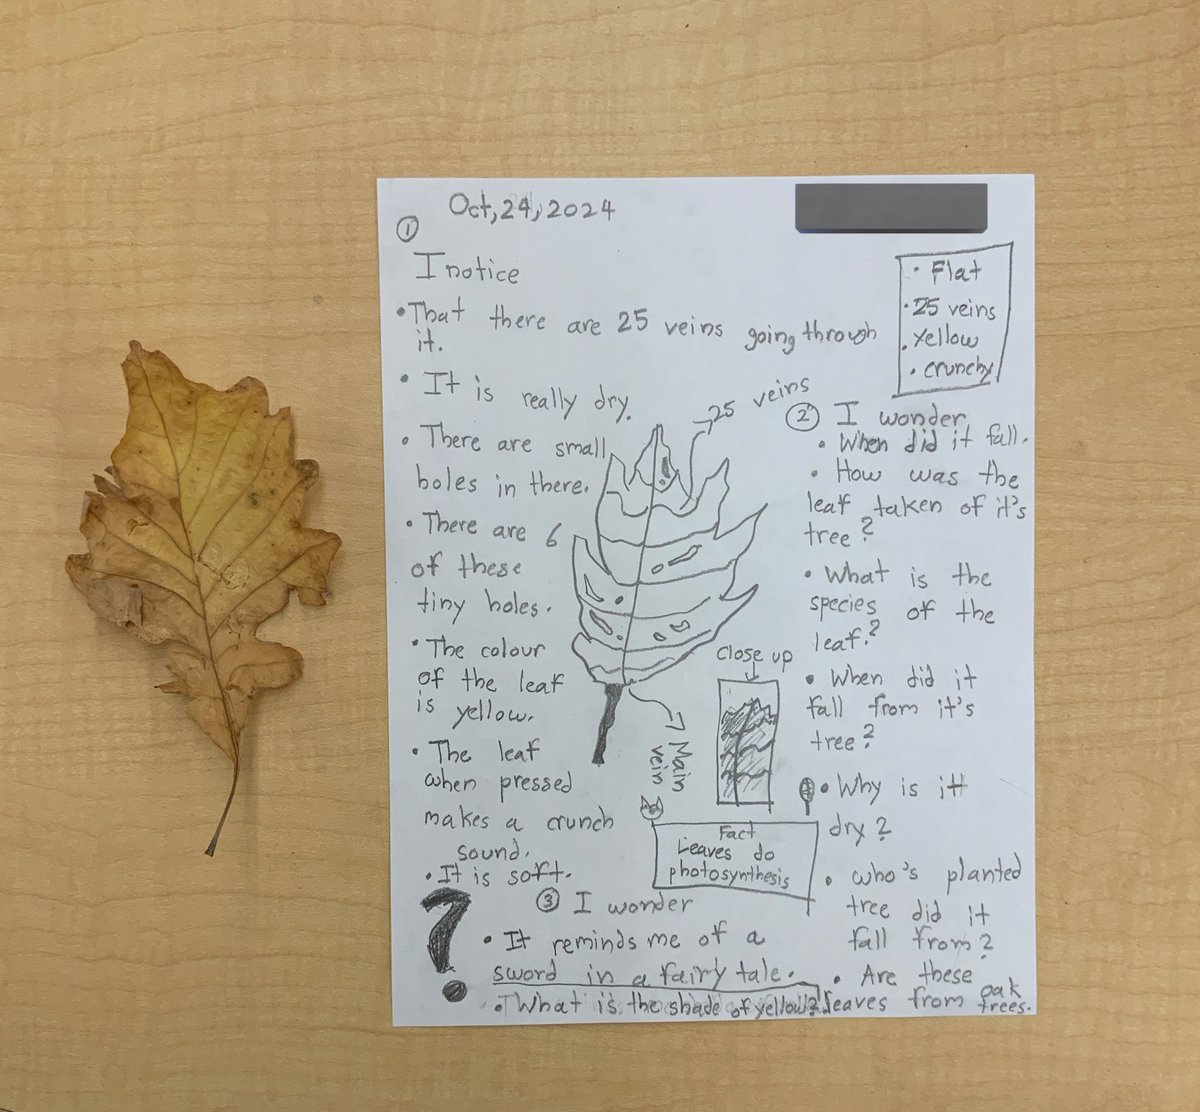 Oct, 24, 2024
①
I notice
• That there are 25 veins going through
it.
• It is really dry.
• There are small
holes in there.
• There are 6
of these
tiny holes.
• The colour
of the leaf
is yellow.
• The leaf
when pressed
makes a crunch
sound.
• It is soft.
• Flat
• 25 veins
• Yellow
• crunchy
25 veins
Main
vein
Close up
Fact
Leaves do
photosynthesis
② I wonder
• When did it fall.
• How was the
leaf taken of it's
tree?
• What is the
species of the
leaf?
• When did it
fall from it's
tree?
• Why is itt
dry?
• who's planted
tree did it
fall from?
• Are these
leaves from oak
trees.
③ I wonder
• It reminds me of a
sword in a fairy tale.
• What is the shade of yellow?
?